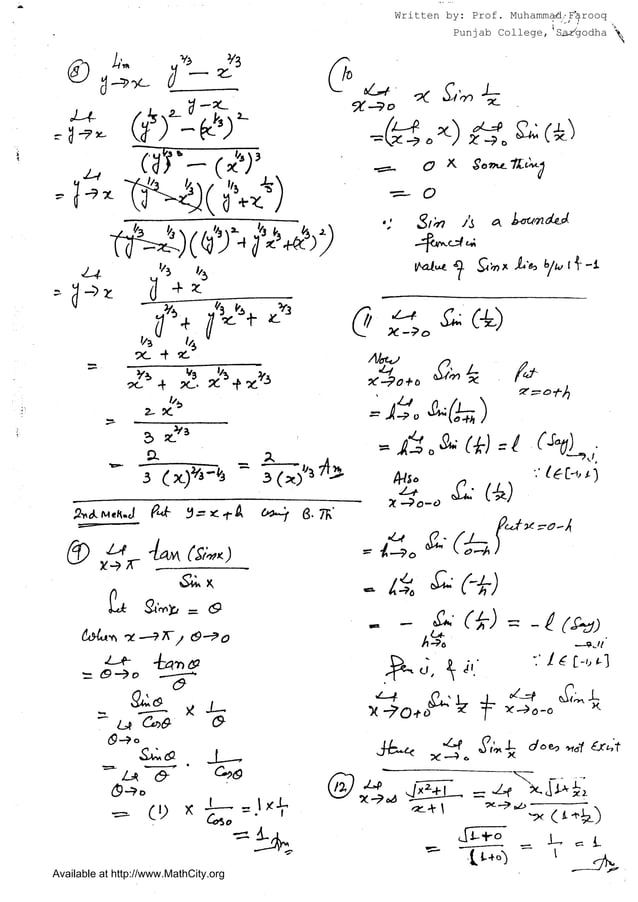 Written by: Prof. Muhammad Farooq
Punjab College, Sargodha
(8) Lim y→x (y^2/3 − x^2/3) / (y−x)
= Lt y→x ((y^1/3)^2 − (x^1/3)^2) / ((y^1/3)^3 − (x^1/3)^3)
= Lt y→x (y^1/3 − x^1/3)(y^1/3 + x^1/3) / (y^1/3 − x^1/3)((y^1/3)^2 + y^1/3 x^1/3 + (x^1/3)^2)
= Lt y→x (y^1/3 + x^1/3) / (y^2/3 + y^1/3 x^1/3 + x^2/3)
= (x^1/3 + x^1/3) / (x^2/3 + x^1/3 . x^1/3 + x^2/3)
= 2 x^1/3 / 3 x^2/3
= 2 / 3 (x)^2/3−1/3 = 2 / 3(x)^1/3 Ans
2nd Method Put y = x + h using B. Th
(9) Lt x→π tan (Sinx) / Sin x
Let Sinx = θ
When x→π, θ→0
= Lt θ→0 tanθ / θ
= Lt θ→0 Sinθ / Cosθ × 1/θ
= Lt θ→0 Sinθ / θ . 1 / Cosθ
= (1) × 1 / Cos0 = 1 × 1/1
= 1 Ans
(10 Lt x→0 x Sin 1/x
= (Lt x→0 x) Lt x→0 Sin (1/x)
= 0 × Something
= 0
∵ Sin is a bounded
function
value of Sinx lies b/w 1 & −1
(11 Lt x→0 Sin (1/x)
Now
Lt x→0+0 Sin 1/x Put x=0+h
= Lt h→0 Sin (1/0+h)
= Lt h→0 Sin (1/h) = l (Say) → i
∵ l∈[−1,1]
Also
Lt x→0−0 Sin (1/x)
Put x=0−h
= Lt h→0 Sin (1/0−h)
= Lt h→0 Sin (−1/h)
= − Lt h→0 Sin (1/h) = −l (Say) → ii
∵ l∈[−1,1]
i, & ii
Lt x→0+0 Sin 1/x ≠ Lt x→0−0 Sin 1/x
Hence Lt x→0 Sin 1/x does not Exist
(12) Lt x→∞ √(x²+1) / (x+1) = Lt x→∞ x√(1+1/x²) / x(1+1/x)
= √(1+0) / (1+0) = 1/1 = 1
Ans
Available at http://www.MathCity.org